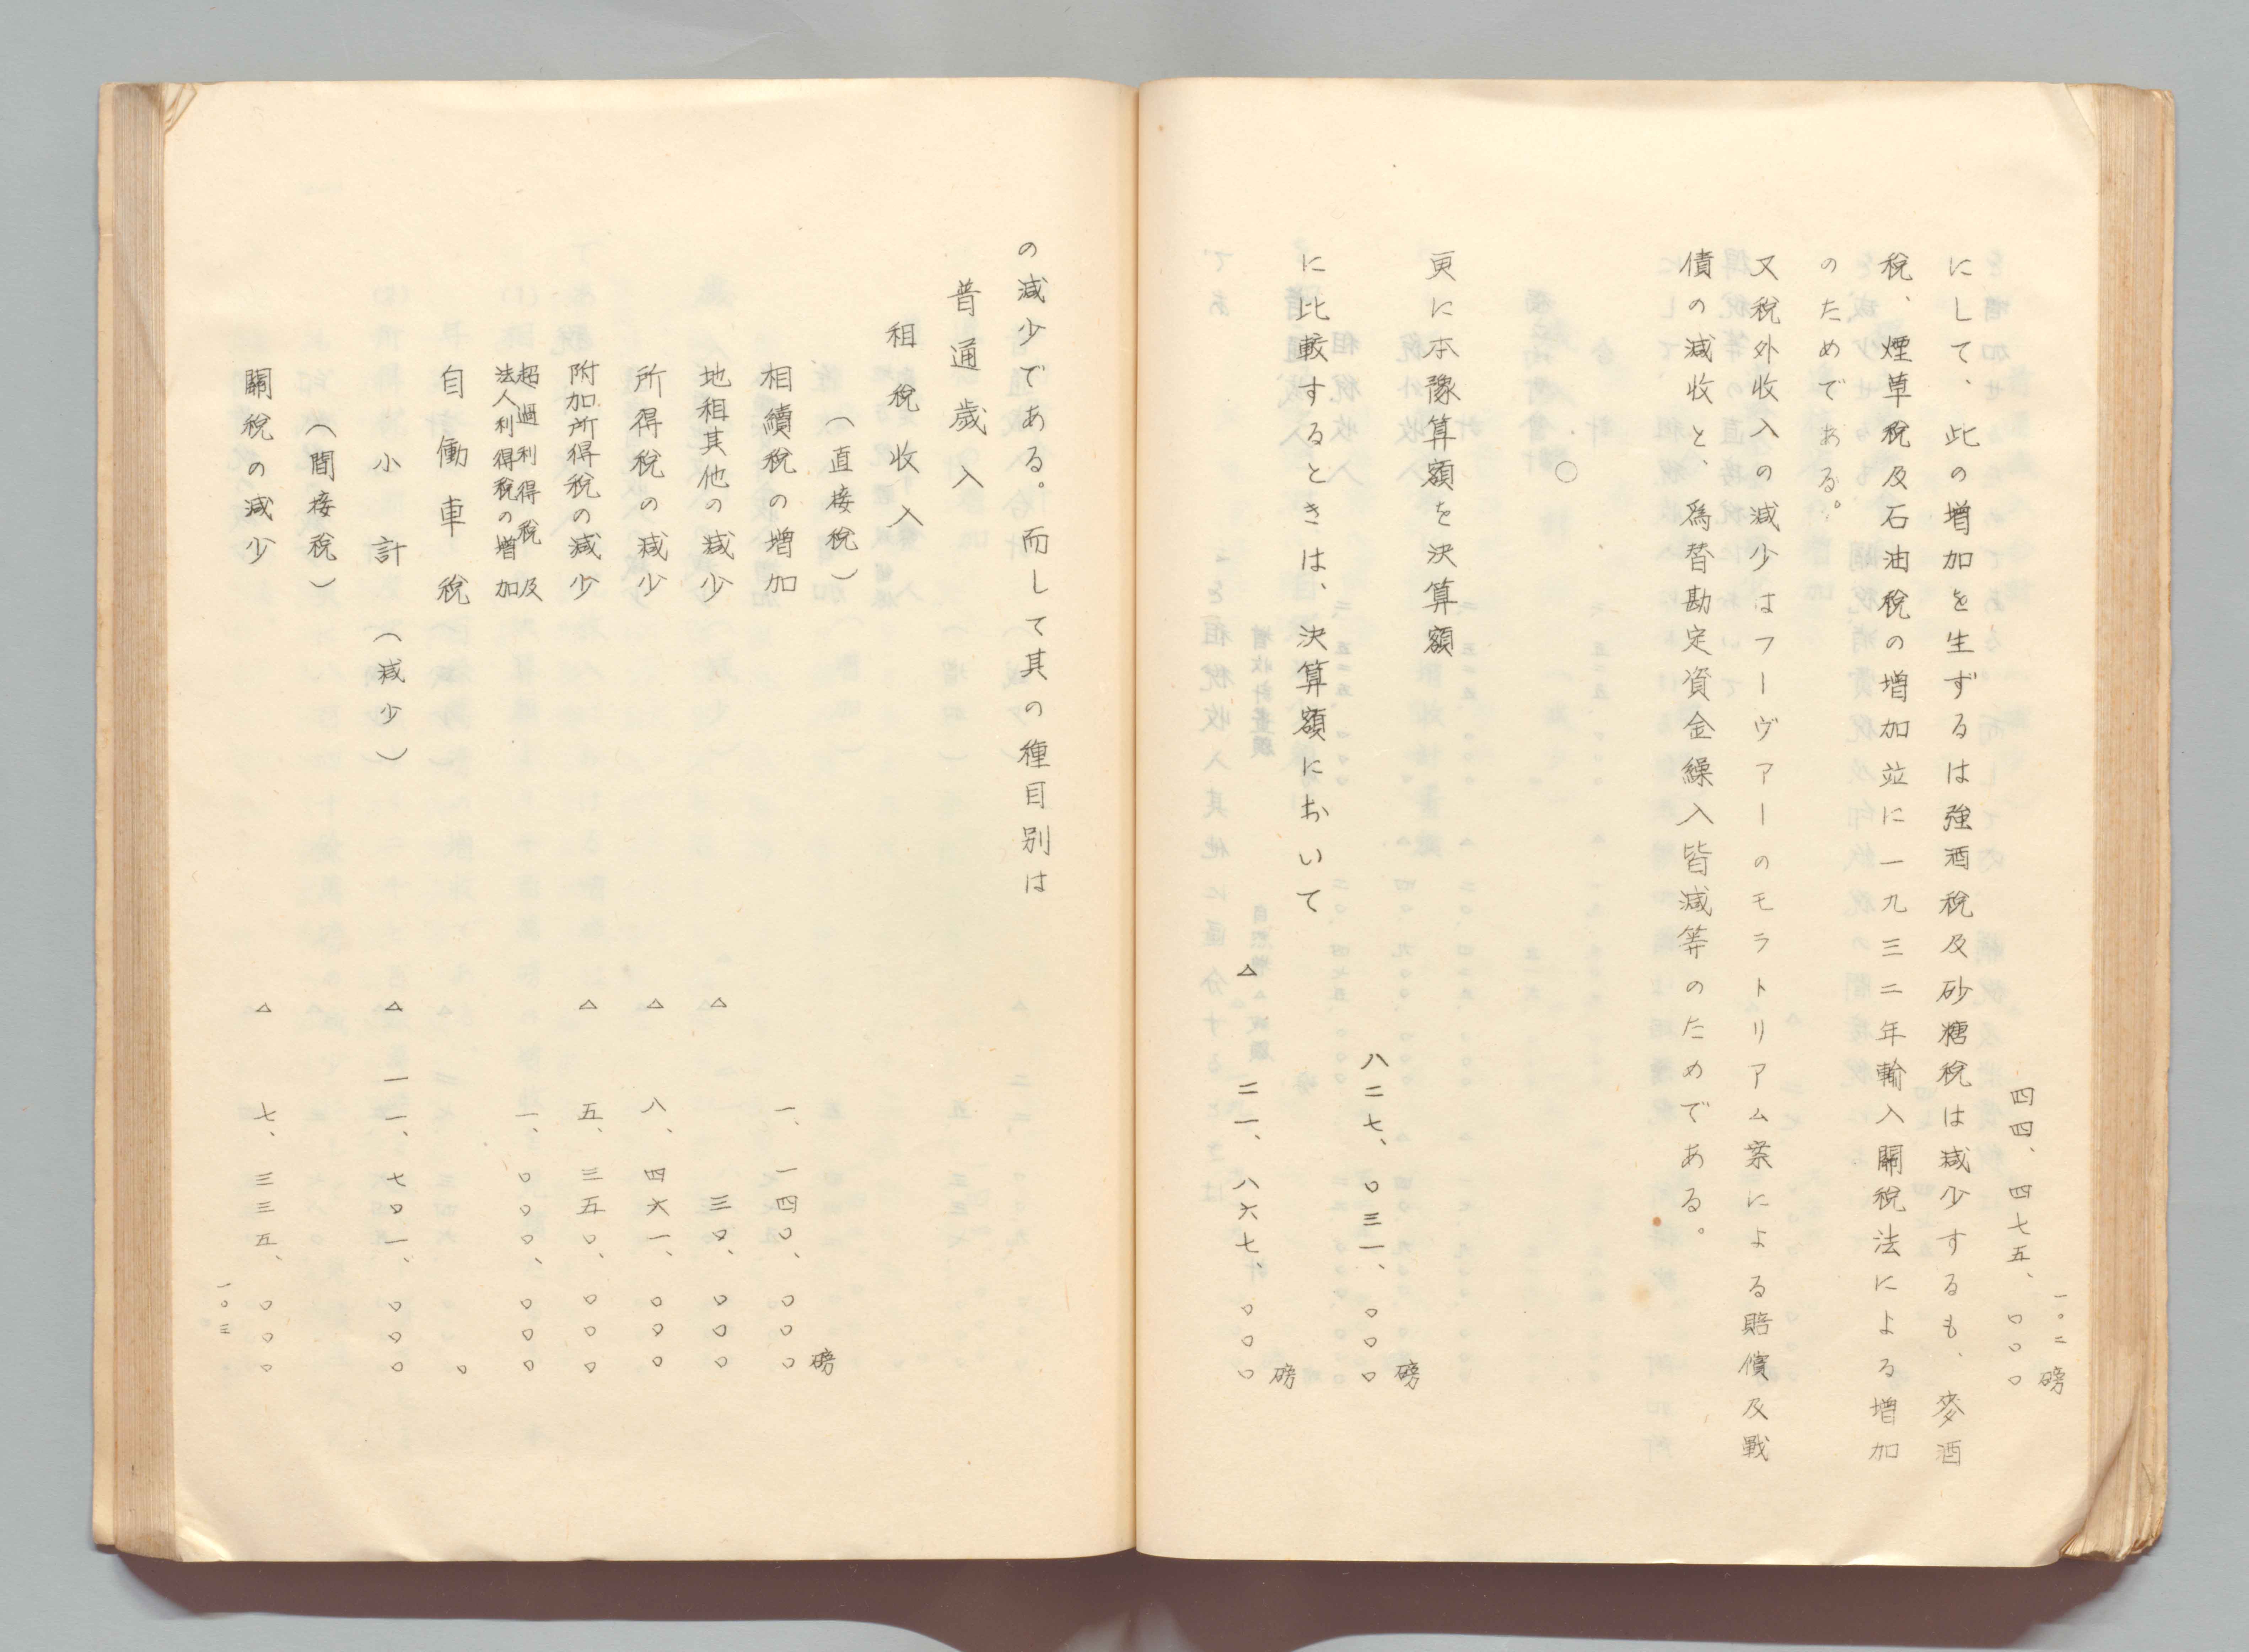 一〇二
磅
四四、四七五、〇〇〇
にして、此の増加を生ずるは強酒税及砂糖税は減少するも、麥酒
税、煙草税及石油税の増加並に一九三二年輸入關税法による増加
のためである。
又税外収入の減少はフーヴァーのモラトリアム案による賠償及戰
債の減收と、爲替勘定資金繰入皆減等のためである。
〇
更に本豫算額を決算額
磅
八二七、〇三一、〇〇〇
に比較するときは、決算額において
磅
△二一、八六七、〇〇〇
の減少である。而して其の種目別は
普通歳入
租税收入
（直接税）
磅
相續税の増加 一、一四〇、〇〇〇
地租其他の減少 △三〇、〇〇〇
所得税の減少 △八、四六一、〇〇〇
附加所得税の減少 △五、三五〇、〇〇〇
超過利得税及
法人利得税の増加 一、〇〇〇、〇〇〇
自働車税 〇
小計（減少） △一一、七〇一、〇〇〇
（間接税）
關税の減少 △七、三三五、〇〇〇
一〇三